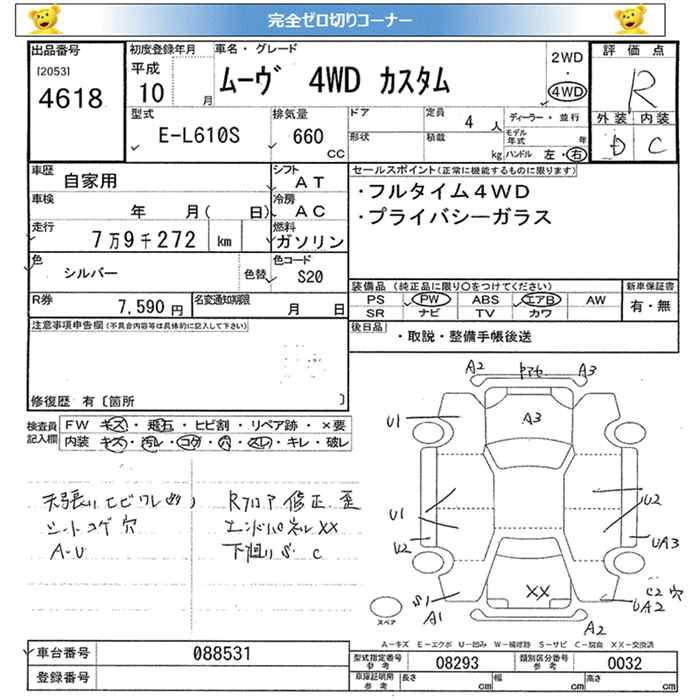 完全ゼロ切りコーナー
出品番号
[2053]
4618
初度登録年月
平成
10 月
車名・グレード
ムーヴ 4WD カスタム
2WD
・
4WD
評価点
R
外装 内装
D C
型式
E-L610S
排気量
660
CC
ドア
形状
定員
4 人
積載
kg
ディーラー・並行
モデル年式 年
ハンドル 左・右
車歴
自家用
シフト
AT
車検
年 月( 日)
冷房
AC
走行
7万9千272 km
燃料
ガソリン
色
シルバー
色替
色コード
S20
R券
7,590 円
名変通知期限
月 日
セールスポイント(正常に機能するものに限ります)
・フルタイム4WD
・プライバシーガラス
装備品(純正品に限り〇をつけてください)
PS PW ABS エアB AW
SR ナビ TV カワ
新車保証書
有・無
後日品
・取説・整備手帳後送
注意事項申告欄(不具合内容等は具体的に記入して下さい)
修復歴 有〔箇所 〕
検査員記入欄
FW キズ・飛石・ヒビ割・リペア跡・×要
内装 キズ・汚レ・コゲ・穴・スレ・キレ・破レ
天張りヒビワレ
シートコゲ穴
A-U
Rフロア修正歪
エンドパネルXX
下廻りS・C
A2
A3
U1
A3
U1
U2
U2
UA3
S1
A1
XX
C2穴
UA2
A2
スペア
A-キズ E-エクボ U-凹み W-補修跡 S-サビ C-腐食 XX-交換済
車台番号
088531
登録番号
型式指定番号
参考
08293
類別区分番号
参考
0032
車庫証明用
参考
長さ cm
幅 cm
高さ cm